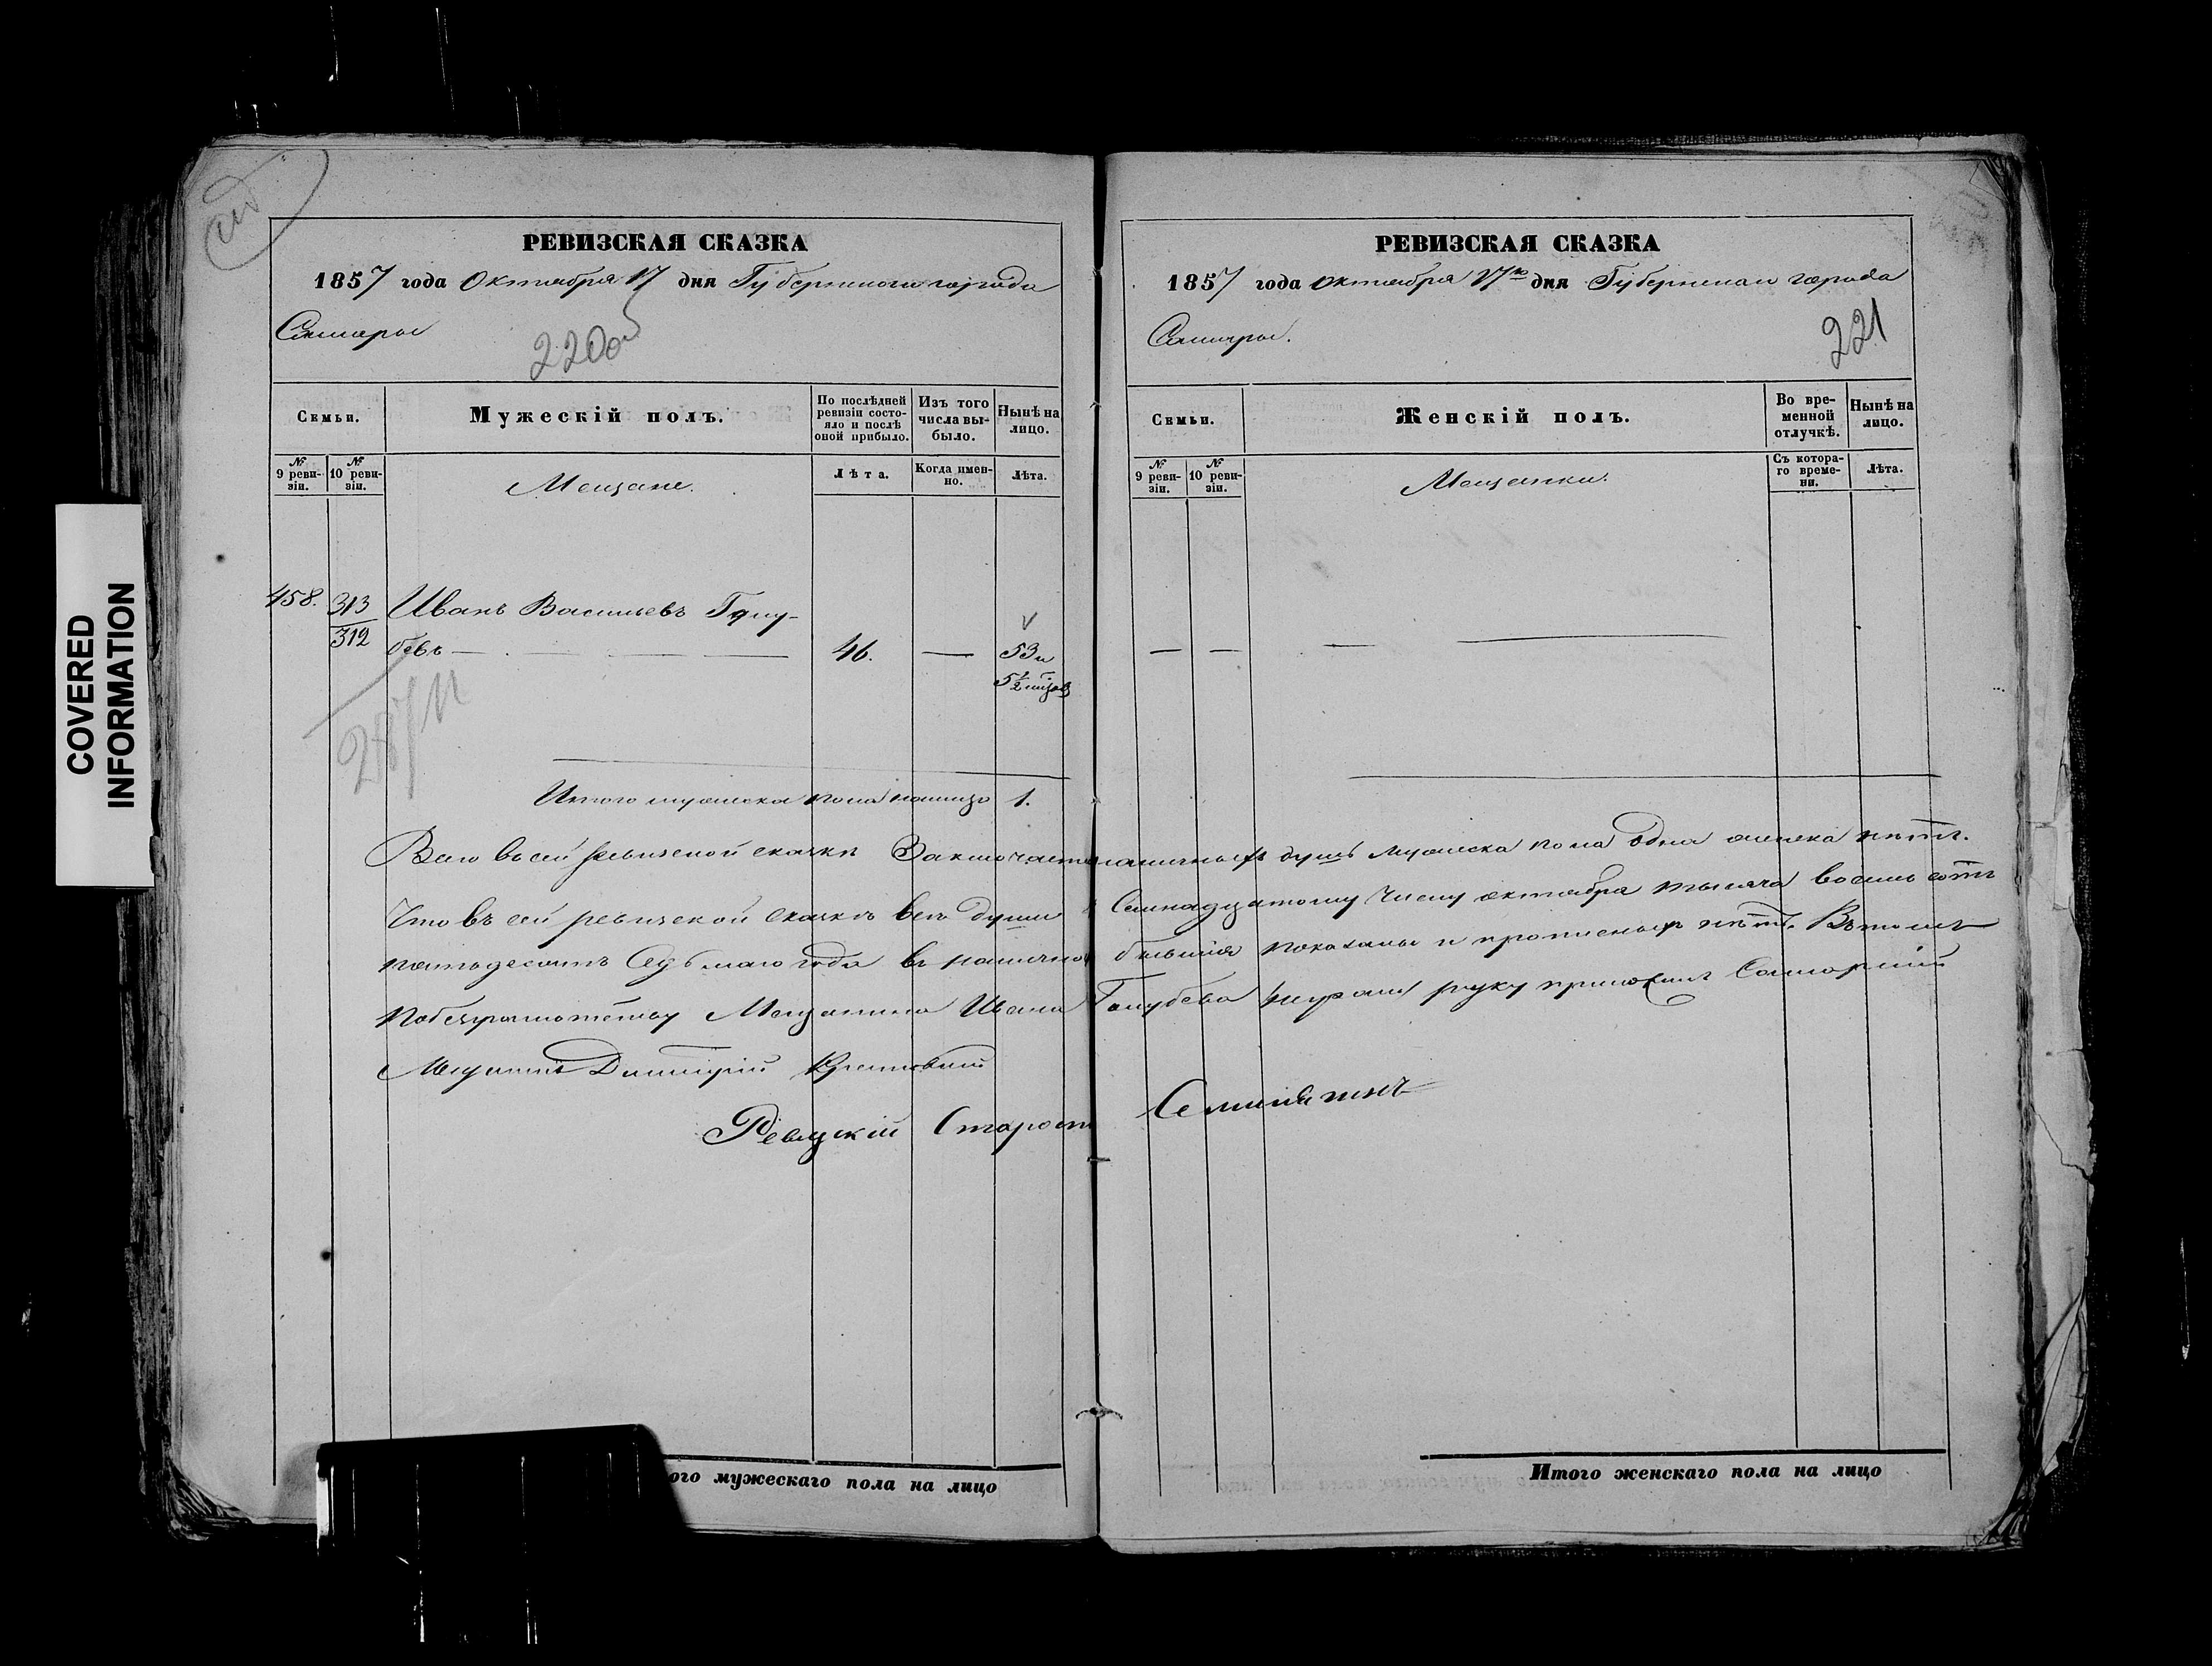 COVERED
INFORMATION
РЕВИЗСКАЯ СКАЗКА
1857 года Октября 17 дня Губернского города
Самары
220об
Семьи.
Мужескій полъ.
По послѣдней ревизіи состояло и послѣ оной прибыло.
Изъ того числа выбыло.
Нынѣ на лицо.
№ 9 ревизіи.
№ 10 ревизіи.
Мещане.
Лѣта.
Когда именно.
Лѣта.
458.
313
312
Иванъ Васильевъ Голу-
бевъ
46.
53 и
5½
287
Итого мужеска пола налицо 1.
РЕВИЗСКАЯ СКАЗКА
1857 года октября 17го дня Губернскаго города
Самары.
221
Семьи.
Женскій полъ.
Во временной отлучкѣ.
Нынѣ на лицо.
№ 9 ревизіи.
№ 10 ревизіи.
Мещанки.
Съ котораго времени.
Лѣта.
Всего въ сей ревизской сказкѣ Заключается наличныхъ душъ мужеска пола одна женска нѣтъ.
Что въ сей ревизской сказкѣ все души Семнадцатому Числу октября тысяча восемь сотъ
пятьдесятъ Седьмаго года въ наличности бывшія показаны и прописныхъ нѣтъ. Въ томъ
По безграмотству Мещанина Ивана Голубева руку приложилъ Самарскій
Мещанинъ Дмитрій
Ревизскій Староста
ого мужескаго пола на лицо
Итого женскаго пола на лицо